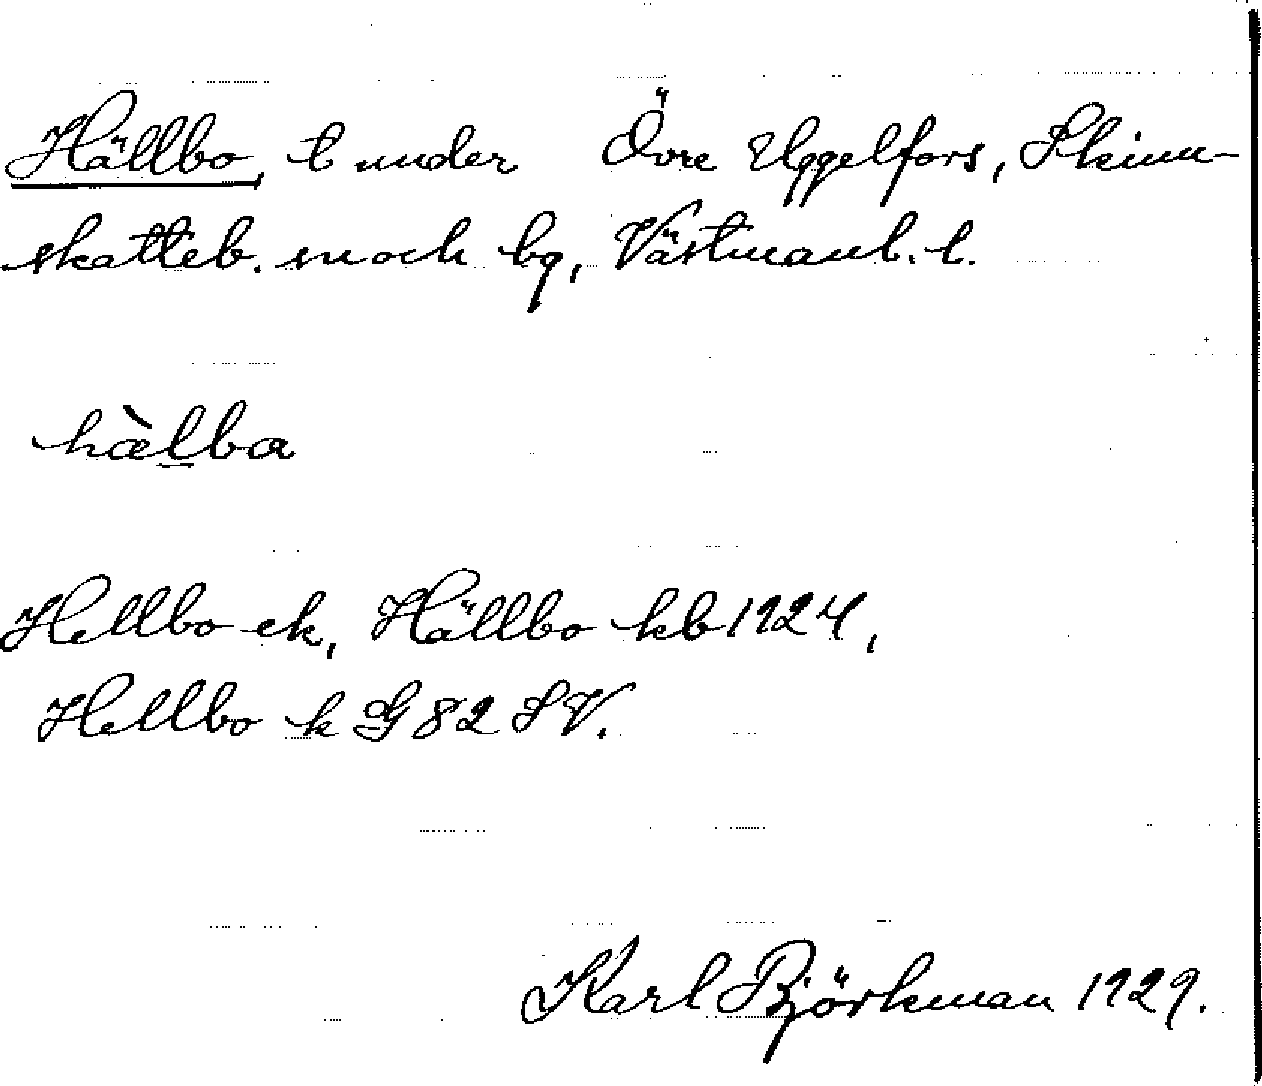 Hällbo, t under Övre Uggelfors, Skinn-
skatteb. sn och bg, Västmanl. l.
hæ̀l̲ba
Hellbo ek, Hällbo kb 1924,
Hellbo k G 82 SV.
Karl Björkman 1929.